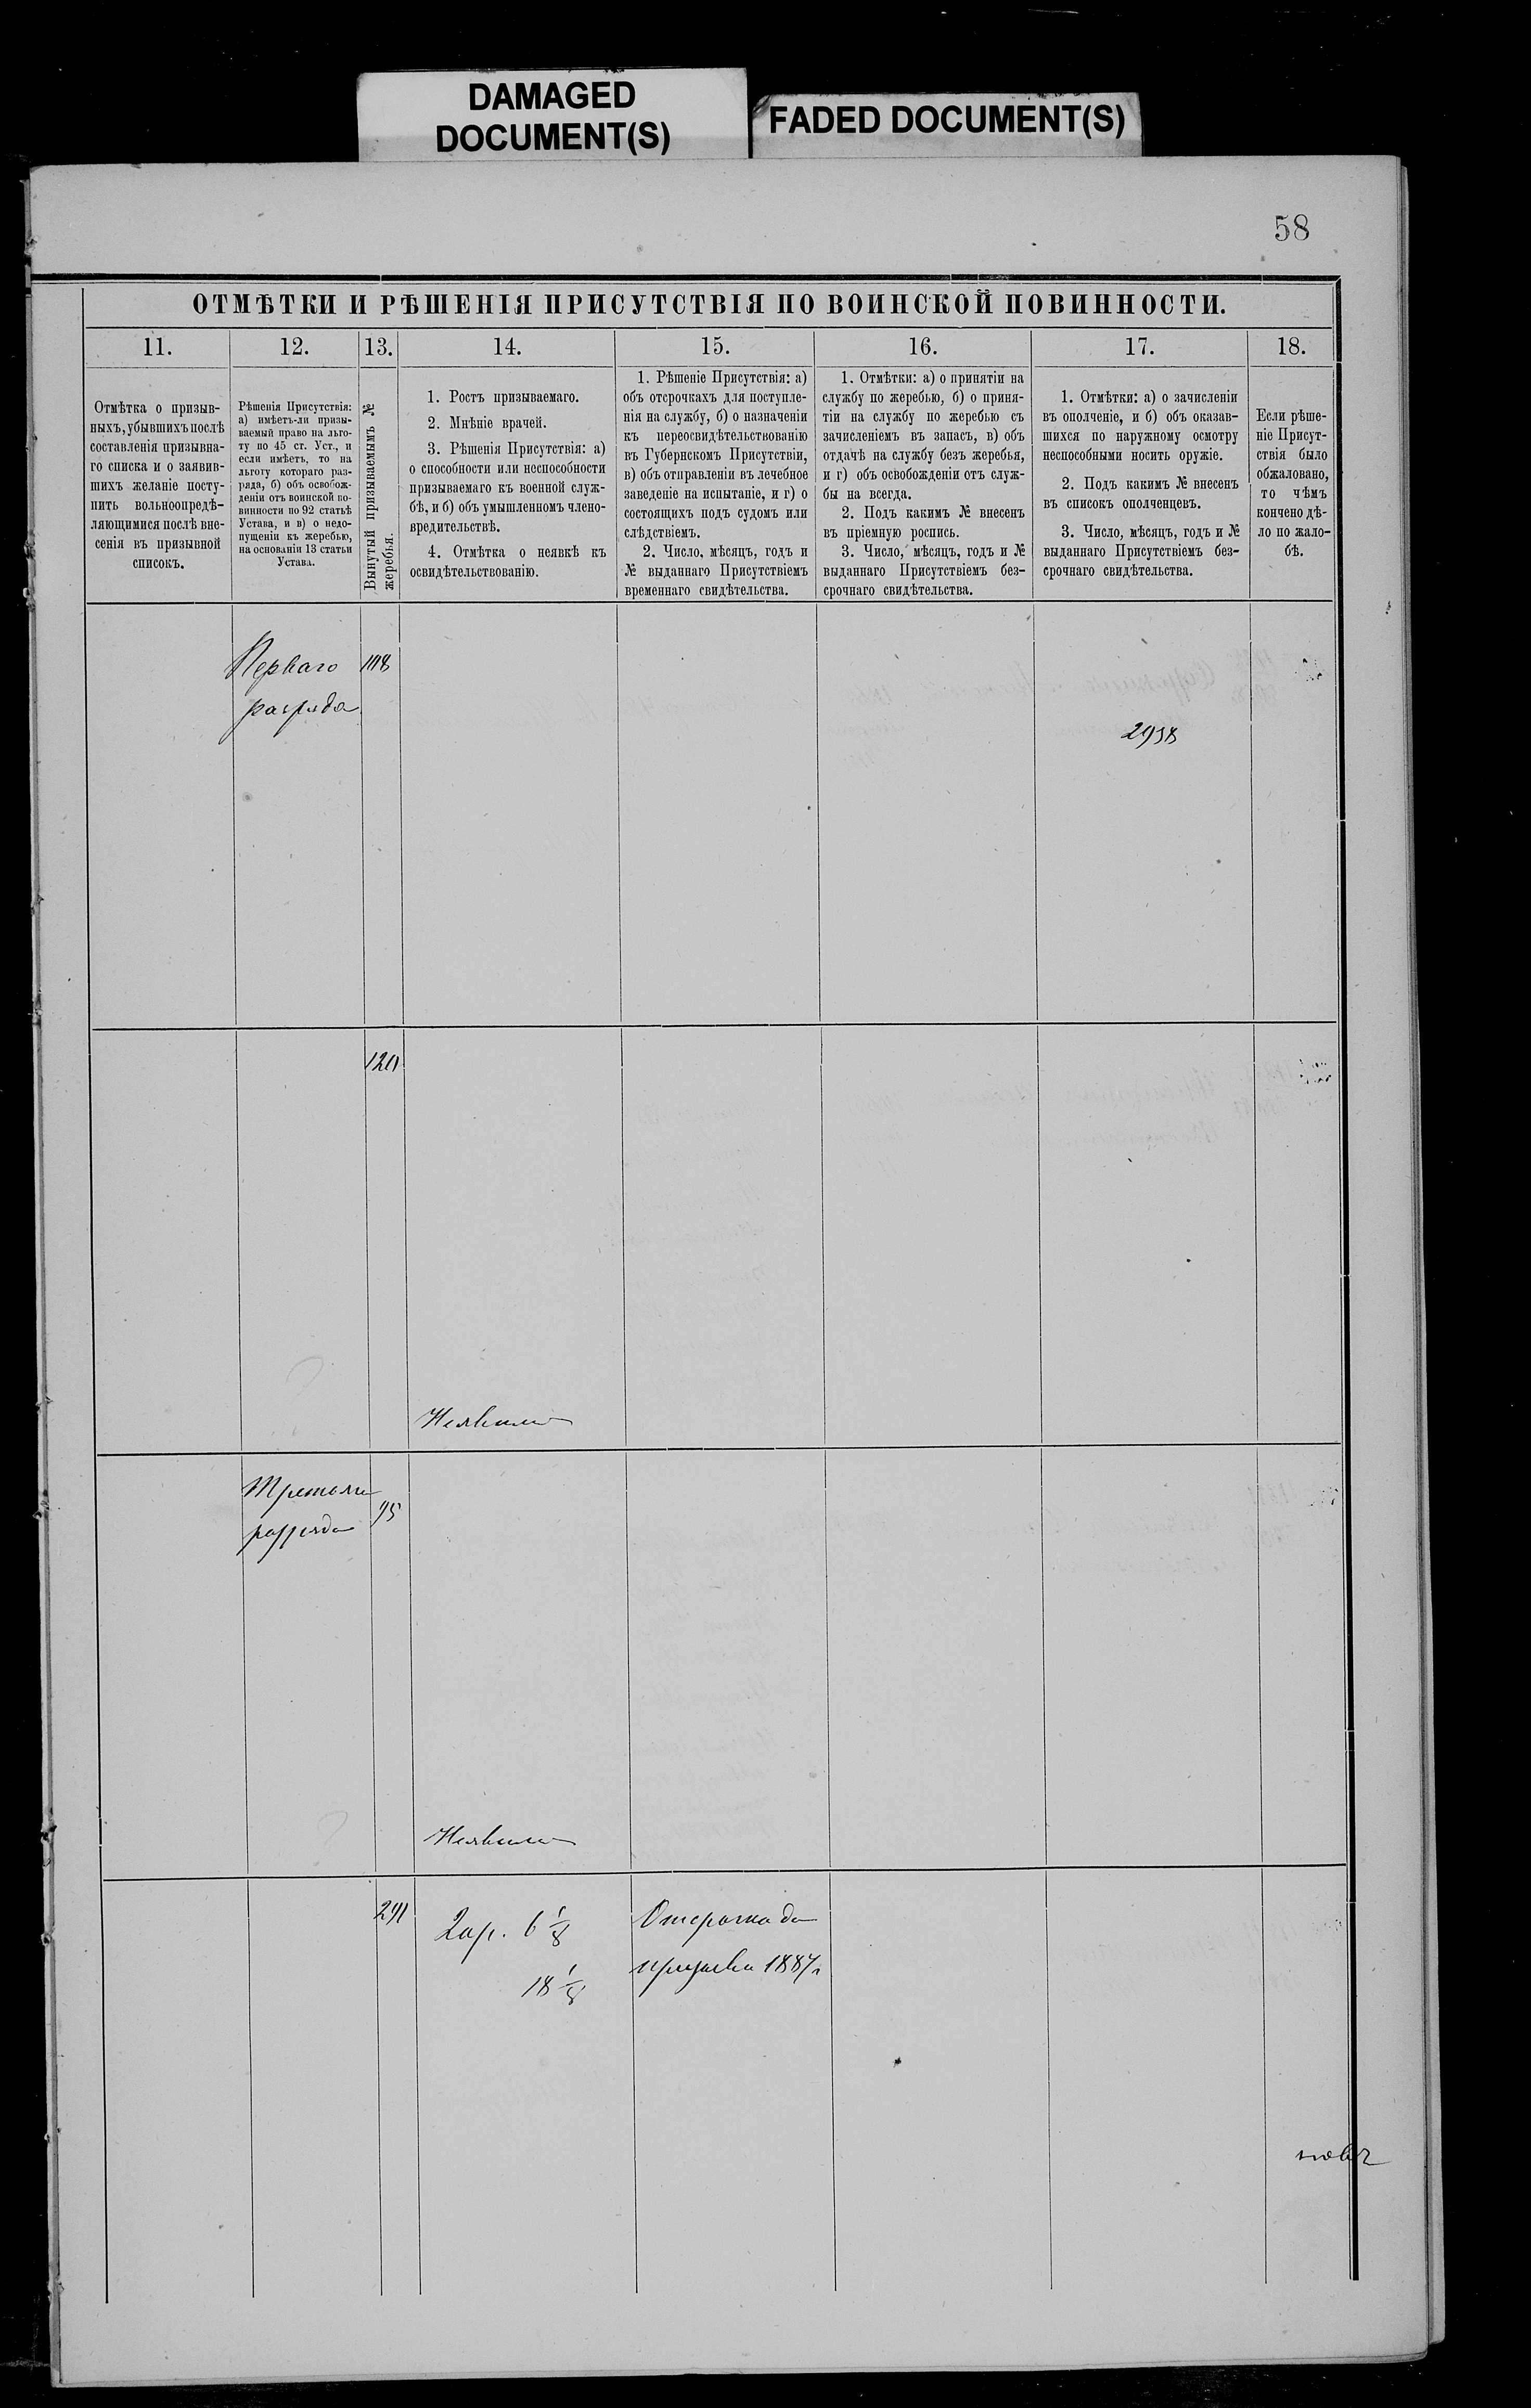 DAMAGED
DOCUMENT(S)
FADED DOCUMENT(S)
58
ОТМѢТКИ И РѢШЕНІЯ ПРИСУТСТВІЯ ПО ВОИНСКОЙ ПОВИННОСТИ.
11.
Отмѣтка о призыв-
ныхъ, убывшихъ послѣ
составленія призывна-
го списка и о заявив-
шихъ желаніе посту-
пить вольноопредѣ-
ляющимися послѣ вне-
сенія въ призывной
списокъ.
12.
Рѣшенія Присутствія:
а) имѣетъ-ли призы-
ваемый право на льго-
ту по 45 ст. Уст., и
если имѣетъ, то на
льготу котораго раз-
ряда, б) объ освобож-
деніи отъ воинской по-
винности по 92 статьѣ
Устава, и в) о недо-
пущеніи къ жеребью,
на основаніи 13 статьи
Устава.
13.
Вынутый призываемымъ №
жеребья.
14.
1. Ростъ призываемаго.
2. Мнѣніе врачей.
3. Рѣшенія Присутствія: а)
о способности или неспособности
призываемаго къ военной служ-
бѣ, и б) объ умышленномъ члено-
вредительствѣ.
4. Отмѣтка о неявкѣ къ
освидѣтельствованію.
15.
1. Рѣшеніе Присутствія: а)
объ отсрочкахъ для поступле-
нія на службу, б) о назначеніи
къ переосвидѣтельствованію
въ Губернскомъ Присутствіи,
в) объ отправленіи въ лечебное
заведеніе на испытаніе, и г) о
состоящихъ подъ судомъ или
слѣдствіемъ.
2. Число, мѣсяцъ, годъ и
№ выданнаго Присутствіемъ
временнаго свидѣтельства.
16.
1. Отмѣтки: а) о принятіи на
службу по жеребью, б) о приня-
тіи на службу по жеребью съ
зачисленіемъ въ запасъ, в) объ
отдачѣ на службу безъ жеребья,
и г) объ освобожденіи отъ служ-
бы на всегда.
2. Подъ какимъ № внесенъ
въ пріемную роспись.
3. Число, мѣсяцъ, годъ и №
выданнаго Присутствіемъ без-
срочнаго свидѣтельства.
17.
1. Отмѣтки: а) о зачисленіи
въ ополченіе, и б) объ оказав-
шихся по наружному осмотру
неспособными носить оружіе.
2. Подъ какимъ № внесенъ
въ списокъ ополченцевъ.
3. Число, мѣсяцъ, годъ и №
выданнаго Присутствіемъ без-
срочнаго свидѣтельства.
18.
Если рѣше-
ніе Присут-
ствія было
обжаловано,
то чѣмъ
кончено дѣ-
ло по жало-
бѣ.
Перваго
разряда
2938
Неявился
Третьяго
разряда
95
Неявился
291
2 ар. 6 1/8
18 1/8
Отсрочка до
призыва 1887 г